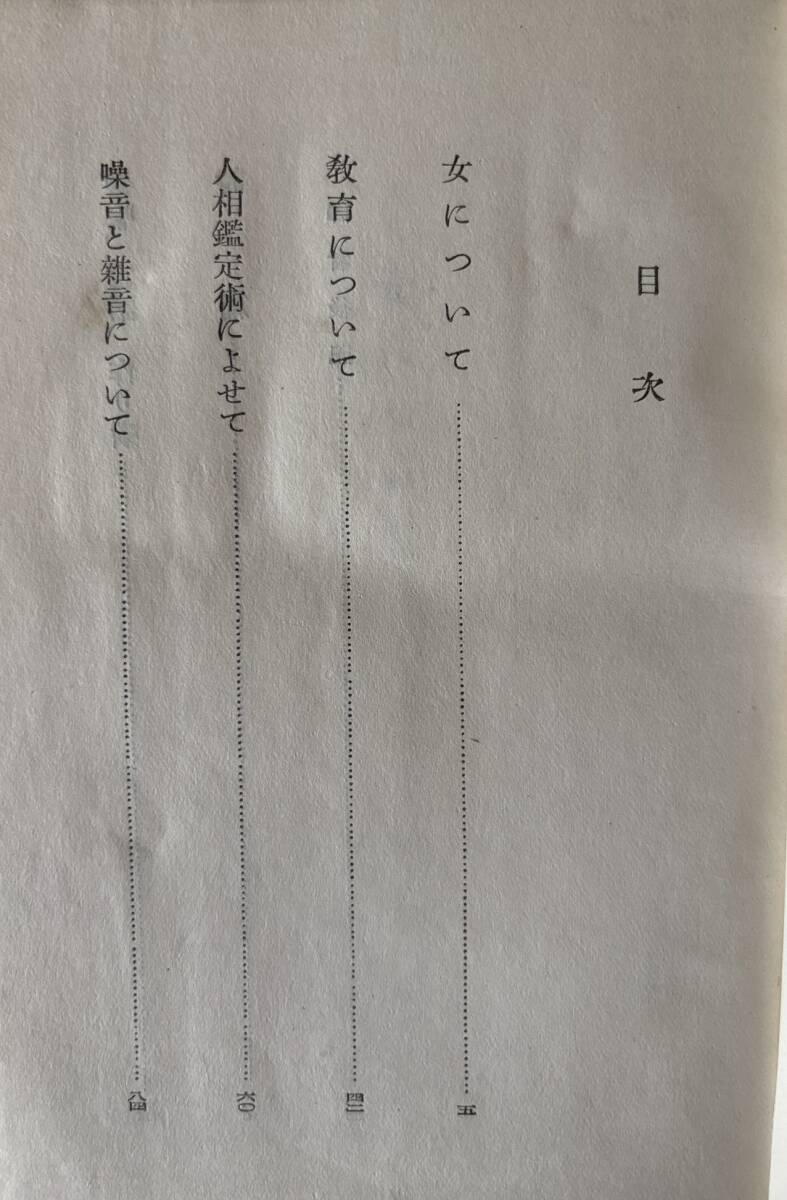 目次
女について……五
教育について……四二
人相鑑定術によせて……六〇
噪音と雜音について……八四